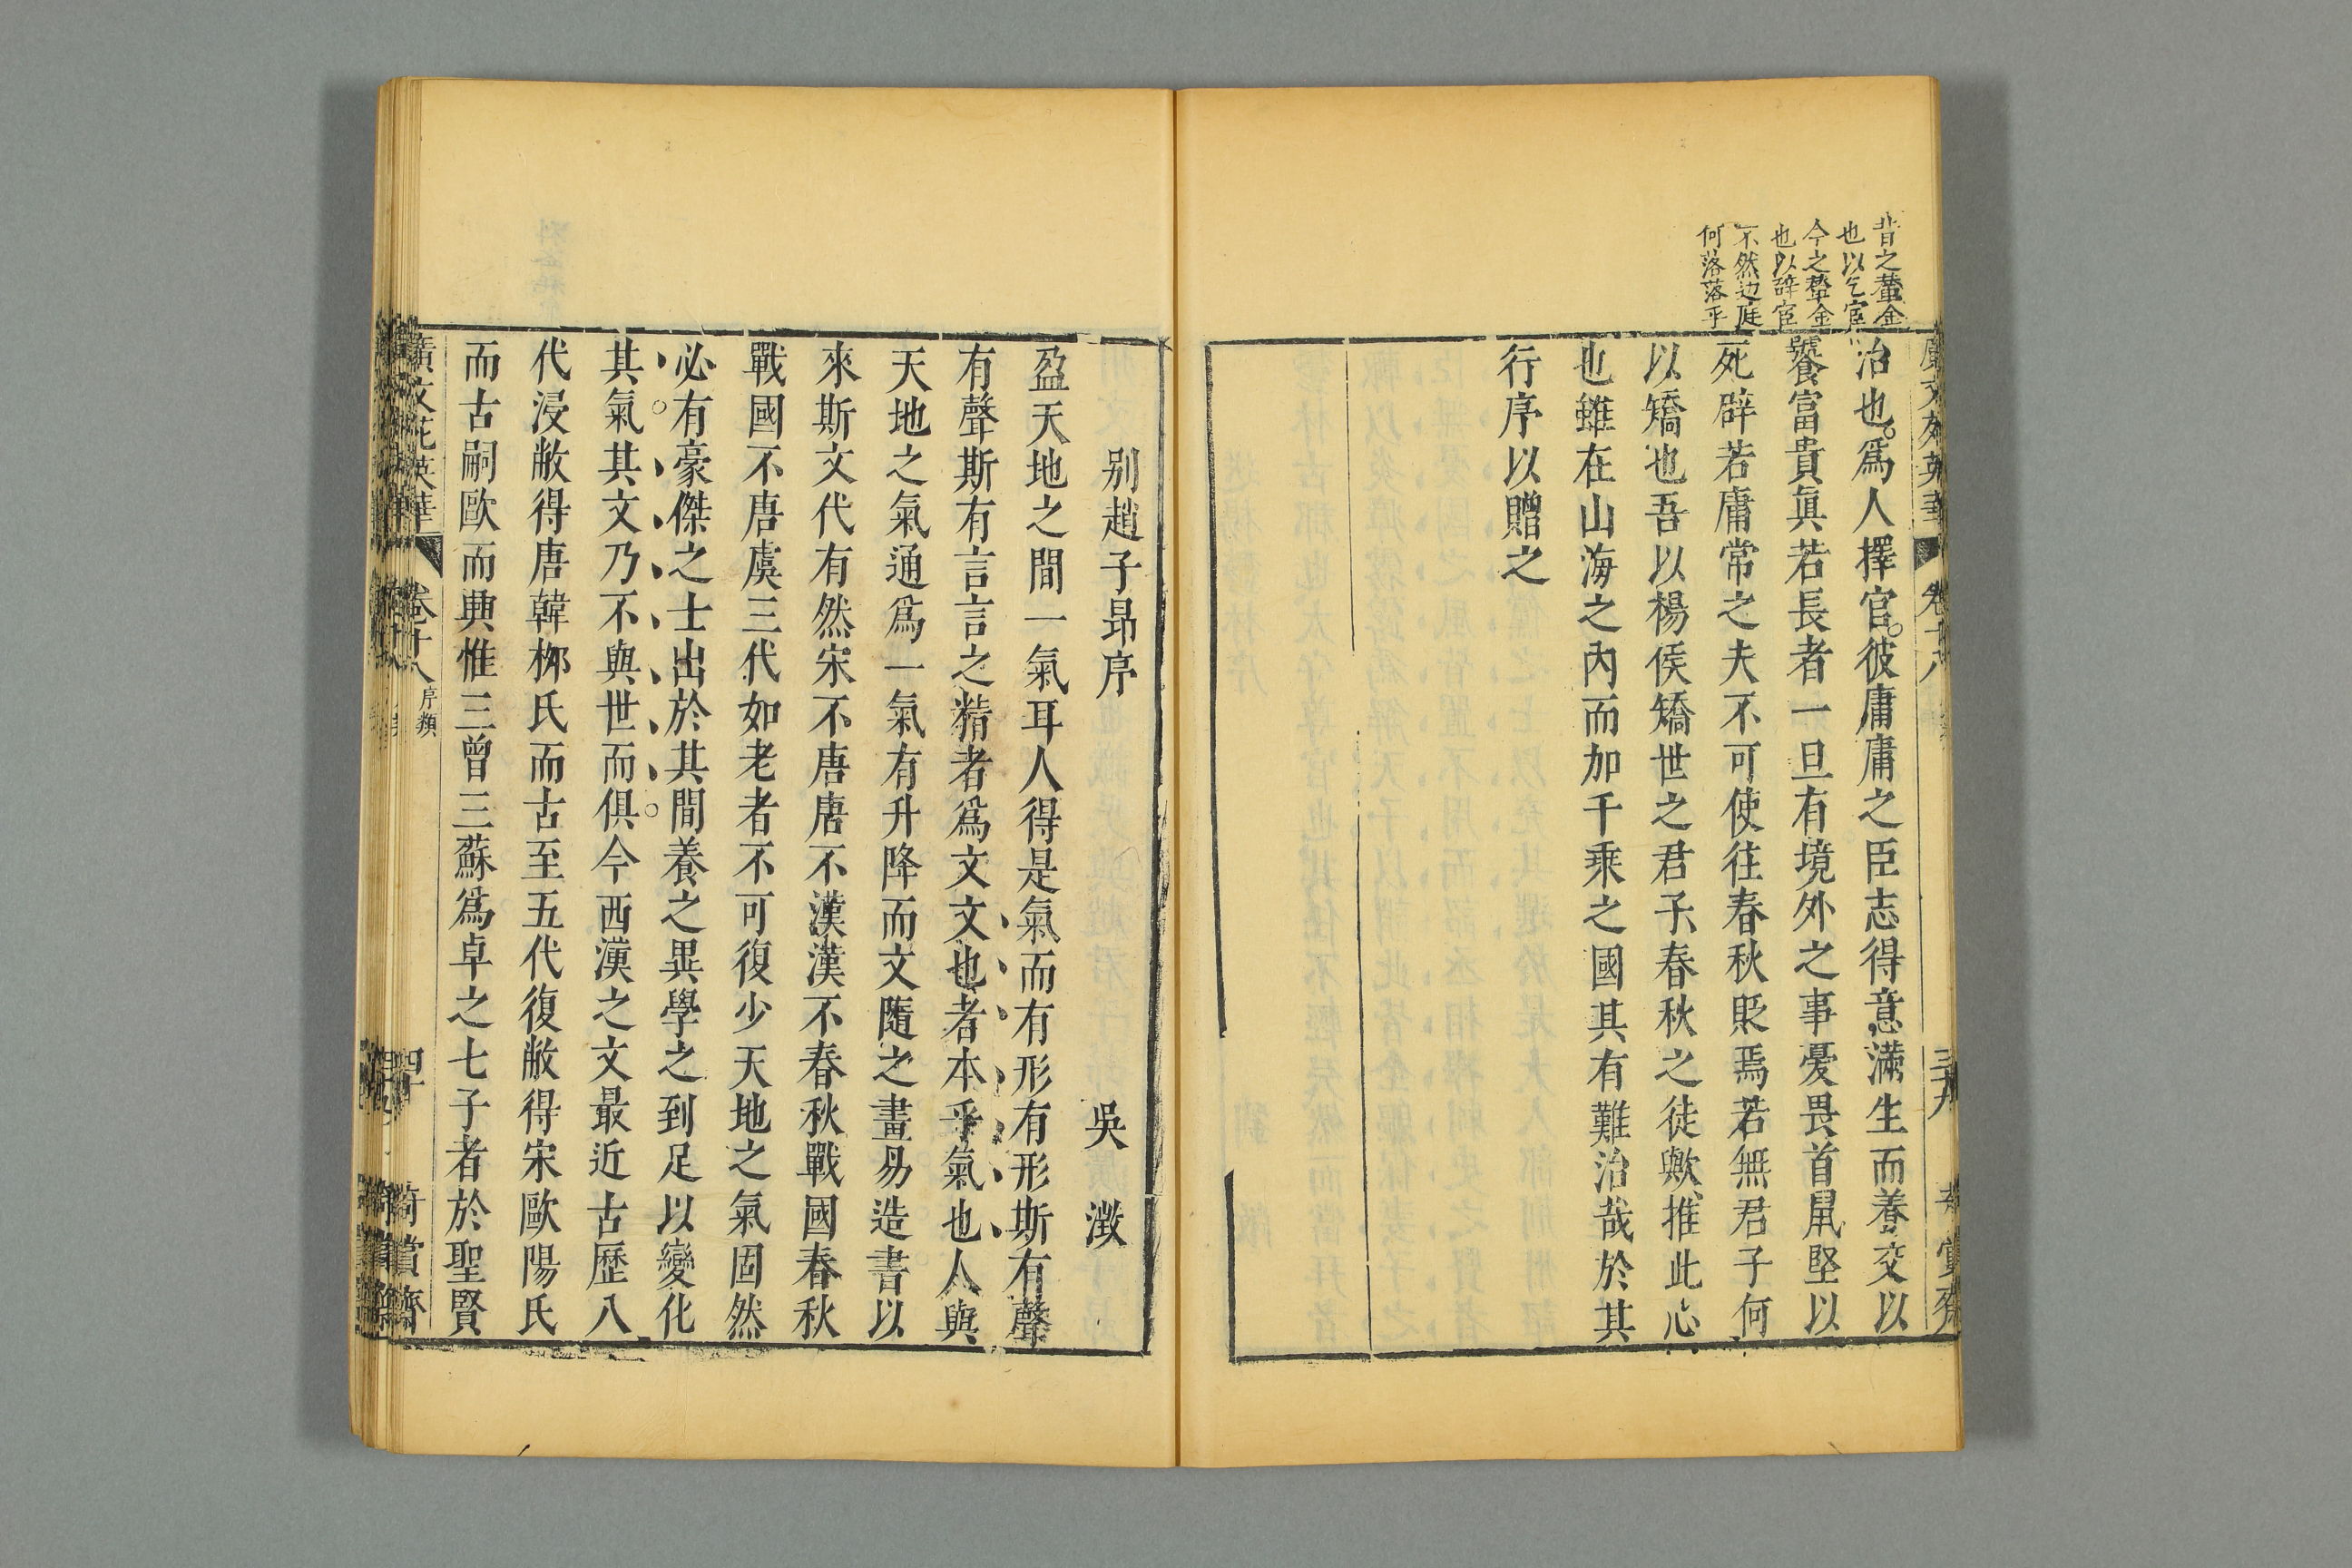 昔之藳金
也以乞官
今之藳金
也以辞官
不然边庭
何落落乎
治也爲人擇官彼庸庸之臣志得意滿生而養交以
饕富貴眞若長者一旦有境外之事憂畏首鼠堅以
死辟若庸常之夫不可使往春秋貶焉若無君子何
以矯也吾以楊侯矯世之君子春秋之徒歟推此心
也雖在山海之內而加千乘之國其有難治哉於其
行序以贈之
别趙子昻序
吳澂
盈天地之間一氣耳人得是氣而有形有形斯有聲
有聲斯有言言之精者爲文文也者本乎氣也人與
天地之氣通爲一氣有升降而文隨之畫易造書以
來斯文代有然宋不唐唐不漢漢不春秋戰國春秋
戰國不唐虞三代如老者不可復少天地之氣固然
必有豪傑之士出於其間養之異學之到足以變化
其氣其文乃不與世而俱今西漢之文最近古歷八
代浸敝得唐韓栁氏而古至五代復敝得宋歐陽氏
而古嗣歐而典惟三曾三蘇爲卓之七子者於聖賢
廣文苑英華
卷十八
序類
四十
奇賞齋